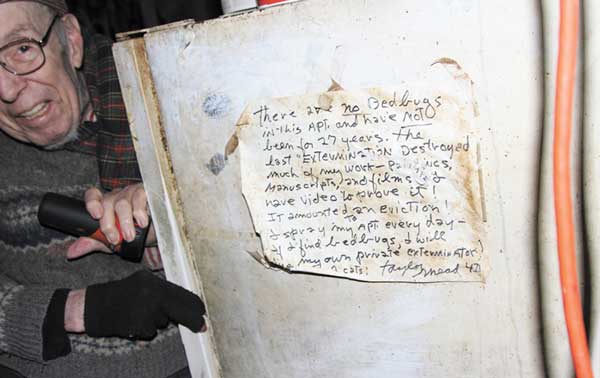 There are no Bedbugs
in this APT. and have NOT
been for 27 years. The
last "EXTERMINATION DESTROYED
much of my work—
Manuscripts, and films
have video to prove it!
IT amounted to an EVICTION!
I spray my APT every day—
if I find bedbugs, I will
my own private exterminator)
cats! Taylor Mead